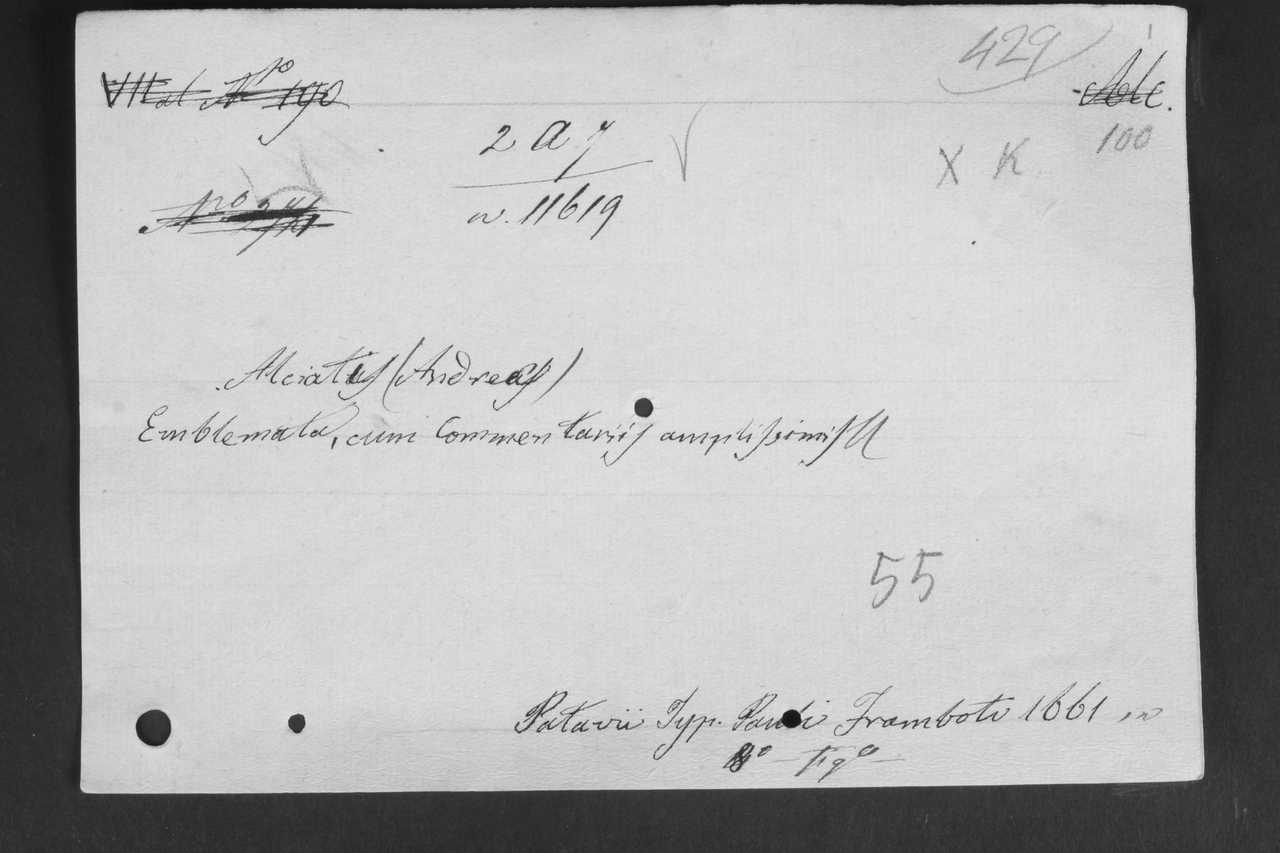 429
VII al Nº 190
2 a 7
100
X K
Nº
n. 11619
Alciatus (Andreas)
Emblemata, cum Commentariis amplissimis
55
Patavii Typ. Pauli Frambotti 1661 in
8º Figº